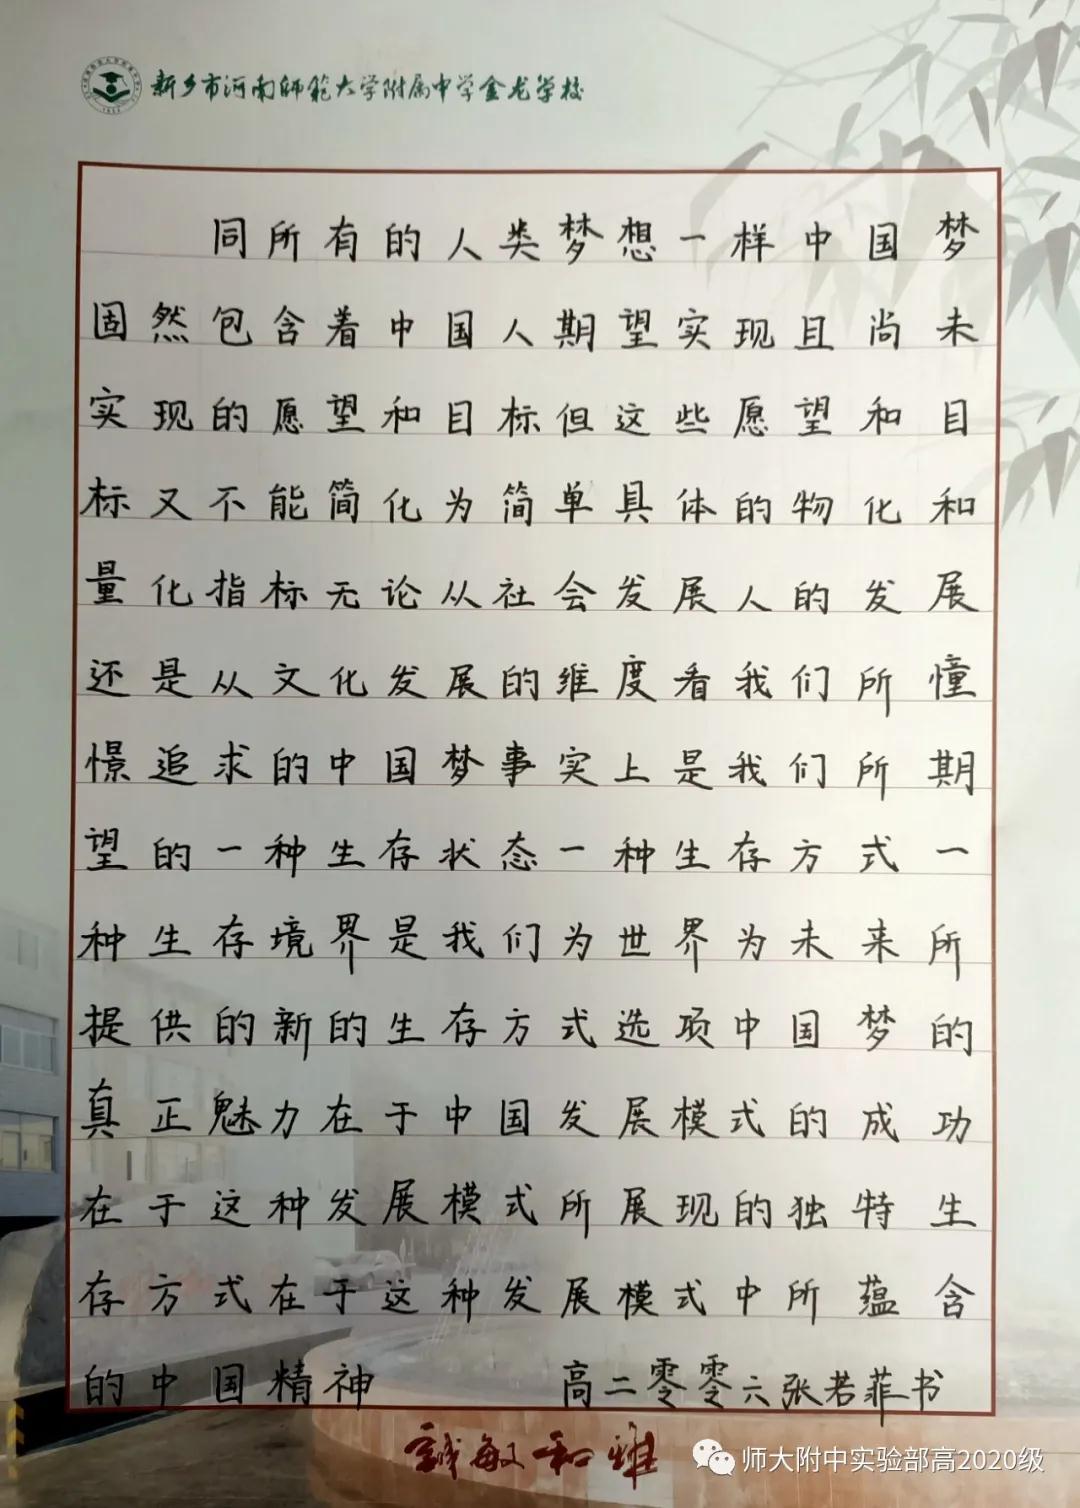 新乡市河南师范大学附属中学金龙学校
同所有的人类梦想一样中国梦
固然包含着中国人期望实现且尚未
实现的愿望和目标但这些愿望和目
标又不能简化为简单具体的物化和
量化指标无论从社会发展人的发展
还是从文化发展的维度看我们所憧
憬追求的中国梦事实上是我们所期
望的一种生存状态一种生存方式一
种生存境界是我们为世界为未来所
提供的新的生存方式选项中国梦的
真正魅力在于中国发展模式的成功
在于这种发展模式所展现的独特生
存方式在于这种发展模式中所蕴含
的中国精神 高二零零六张若菲书
誠敏和雅
师大附中实验部高2020级